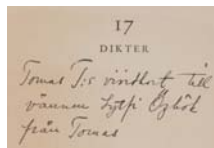 17
DIKTER
Tomas T:s visitkort till
vännen Lütfi Özkök
från Tomas